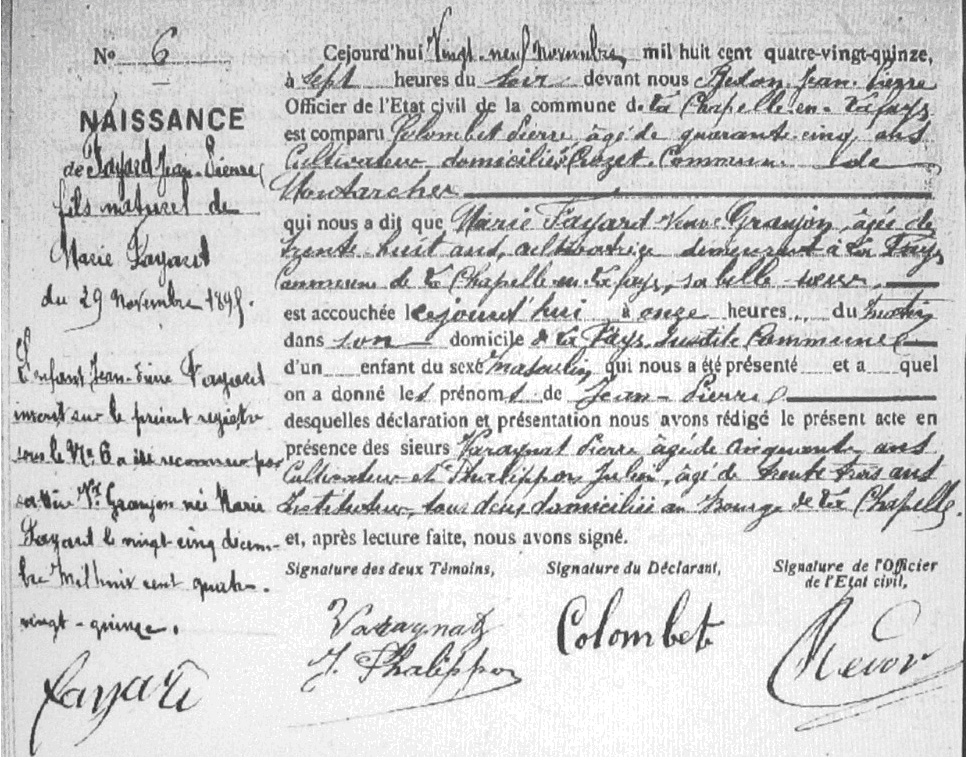 N° 6
NAISSANCE
de Fayard Jean-Pierre
fils naturel de
Marie Fayard
du 29 Novembre 1895.
L'enfant Jean-Pierre Fayard
inscrit sur le présent registre
sous le N° 6 a été reconnu par
sa mère Vve Granjon née Marie
Fayard le vingt-cinq décem-
bre mil huit cent quatre-
vingt-quinze.
Fayard
Cejourd'hui Vingt-neuf Novembre mil huit cent quatre-vingt-quinze,
à Sept heures du Soir devant nous Jean-Pierre
Officier de l'Etat civil de la commune de La Chapelle-en-Lafaye
est comparu Colombet Pierre âgé de quarante-cinq ans
Cultivateur domicilié à Crozet Commune de
Montarcher
qui nous a dit que Marie Fayard Veuve Granjon, âgée de
trente-huit ans, cultivatrice demeurant à La Faye
Commune de La Chapelle-en-Lafaye, sa belle soeur,
est accouchée le cejourd'hui à onze heures du matin
dans son domicile de La Faye susdite Commune
d'un enfant du sexe Masculin qui nous a été présenté et a quel
on a donné les prénoms de Jean-Pierre
desquelles déclaration et présentation nous avons rédigé le présent acte en
présence des sieurs Varaynat Pierre âgé de cinquante ans
Cultivateur et Phalippon Julien, âgé de trente trois ans
Instituteur, tous deux domiciliés au Bourg de La Chapelle.
et, après lecture faite, nous avons signé.
Signature des deux Témoins, Signature du Déclarant, Signature de l'Officier
de l'Etat civil,
Varaynat
J. Phalippon
Colombet